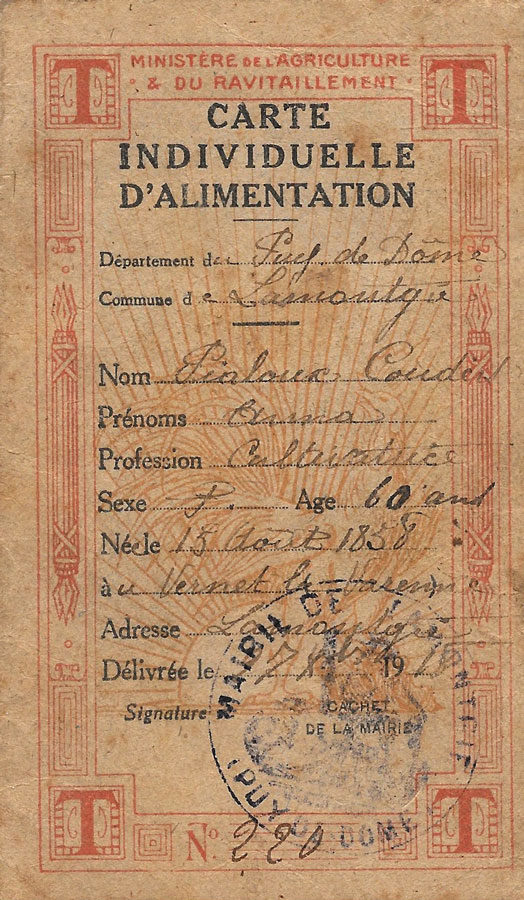 T MINISTÈRE DE L'AGRICULTURE T
& DU RAVITAILLEMENT
CARTE
INDIVIDUELLE
D'ALIMENTATION
Département du Puy de Dôme
Commune de Lamontgie
Nom Pialoux Coudèr
Prénoms Anna
Profession Cultivatrice
Sexe F. Age 60 ans
Née le 15 Août 1858
au Vernet la Varenne
Adresse Lamontgie
Délivrée le 7 1918
Signature
CACHET
DE LA MAIRIE
MAIRIE DE LAMONTGIE
(PUY DE DOME)
T No. 220 T